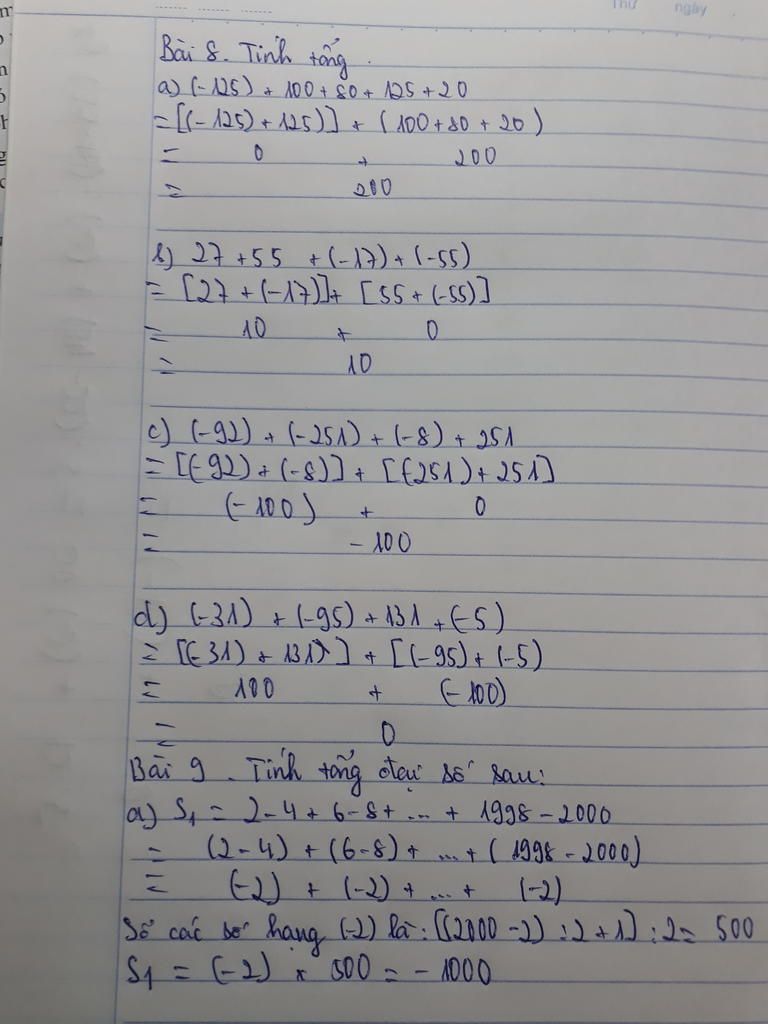 Thứ ngày
Bài 8. Tính tổng.
a) (-125) + 100 + 80 + 125 + 20
= [(-125) + 125)] + (100 + 80 + 20)
= 0 + 200
= 200
b) 27 + 55 + (-17) + (-55)
= [27 + (-17)] + [55 + (-55)]
= 10 + 0
= 10
c) (-92) + (-251) + (-8) + 251
= [(-92) + (-8)] + [(-251) + 251]
= (-100) + 0
= -100
d) (-31) + (-95) + 131 + (-5)
= [(-31) + 131)] + [(-95) + (-5)
= 100 + (-100)
= 0
Bài 9. Tính tổng đại số sau:
a) S₁ = 2 - 4 + 6 - 8 + ... + 1998 - 2000
= (2 - 4) + (6 - 8) + ... + (1998 - 2000)
= (-2) + (-2) + ... + (-2)
Số các số hạng (-2) là: [(2000 - 2) : 2 + 1] : 2 = 500
S₁ = (-2) x 500 = -1000